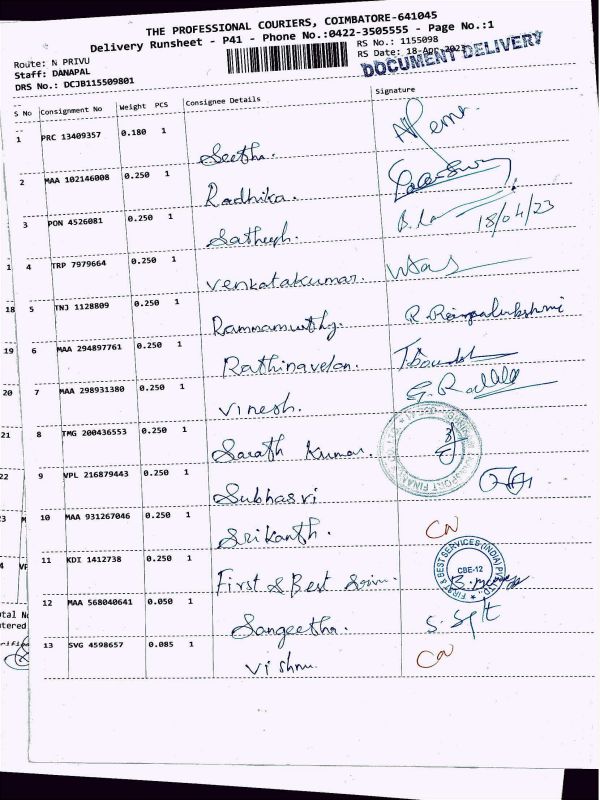 THE PROFESSIONAL COURIERS, COIMBATORE-641045
Delivery Runsheet - P41 - Phone No.:0422-3505555 - Page No.:1
Route: N PRIVU
RS No.: 1155098
Staff: DANAPAL
RS Date: 18-Apr-2023
DOCUMENT DELIVERY
DRS No.: DCJB115509801
S No Consignment No Weight PCS Consignee Details Signature
1 PRC 13409357 0.180 1 Seetha.
2 MAA 102146008 0.250 1 Radhika.
3 PON 4526081 0.250 1 Satheesh. 18/04/23
4 TRP 7979664 0.250 1 Venkatakumar.
5 TNJ 1128809 0.250 1 Rammamurthy.
6 MAA 294897761 0.250 1 Rathinavelan.
7 MAA 298931380 0.250 1 Vinesh.
8 TMG 200436553 0.250 1 Sarath Kumar.
9 VPL 216879443 0.250 1 Subhasri
10 MAA 931267046 0.250 1 Srikanth. CN
11 KDI 1412738 0.250 1 First & Best
FIRST & BEST SERVICES (INDIA) PVT. LTD.
CBE-12
12 MAA 568040641 0.050 1 Sangeetha.
13 SVG 4598657 0.085 1 Vishnu. CN
1
18
19
20
21
22